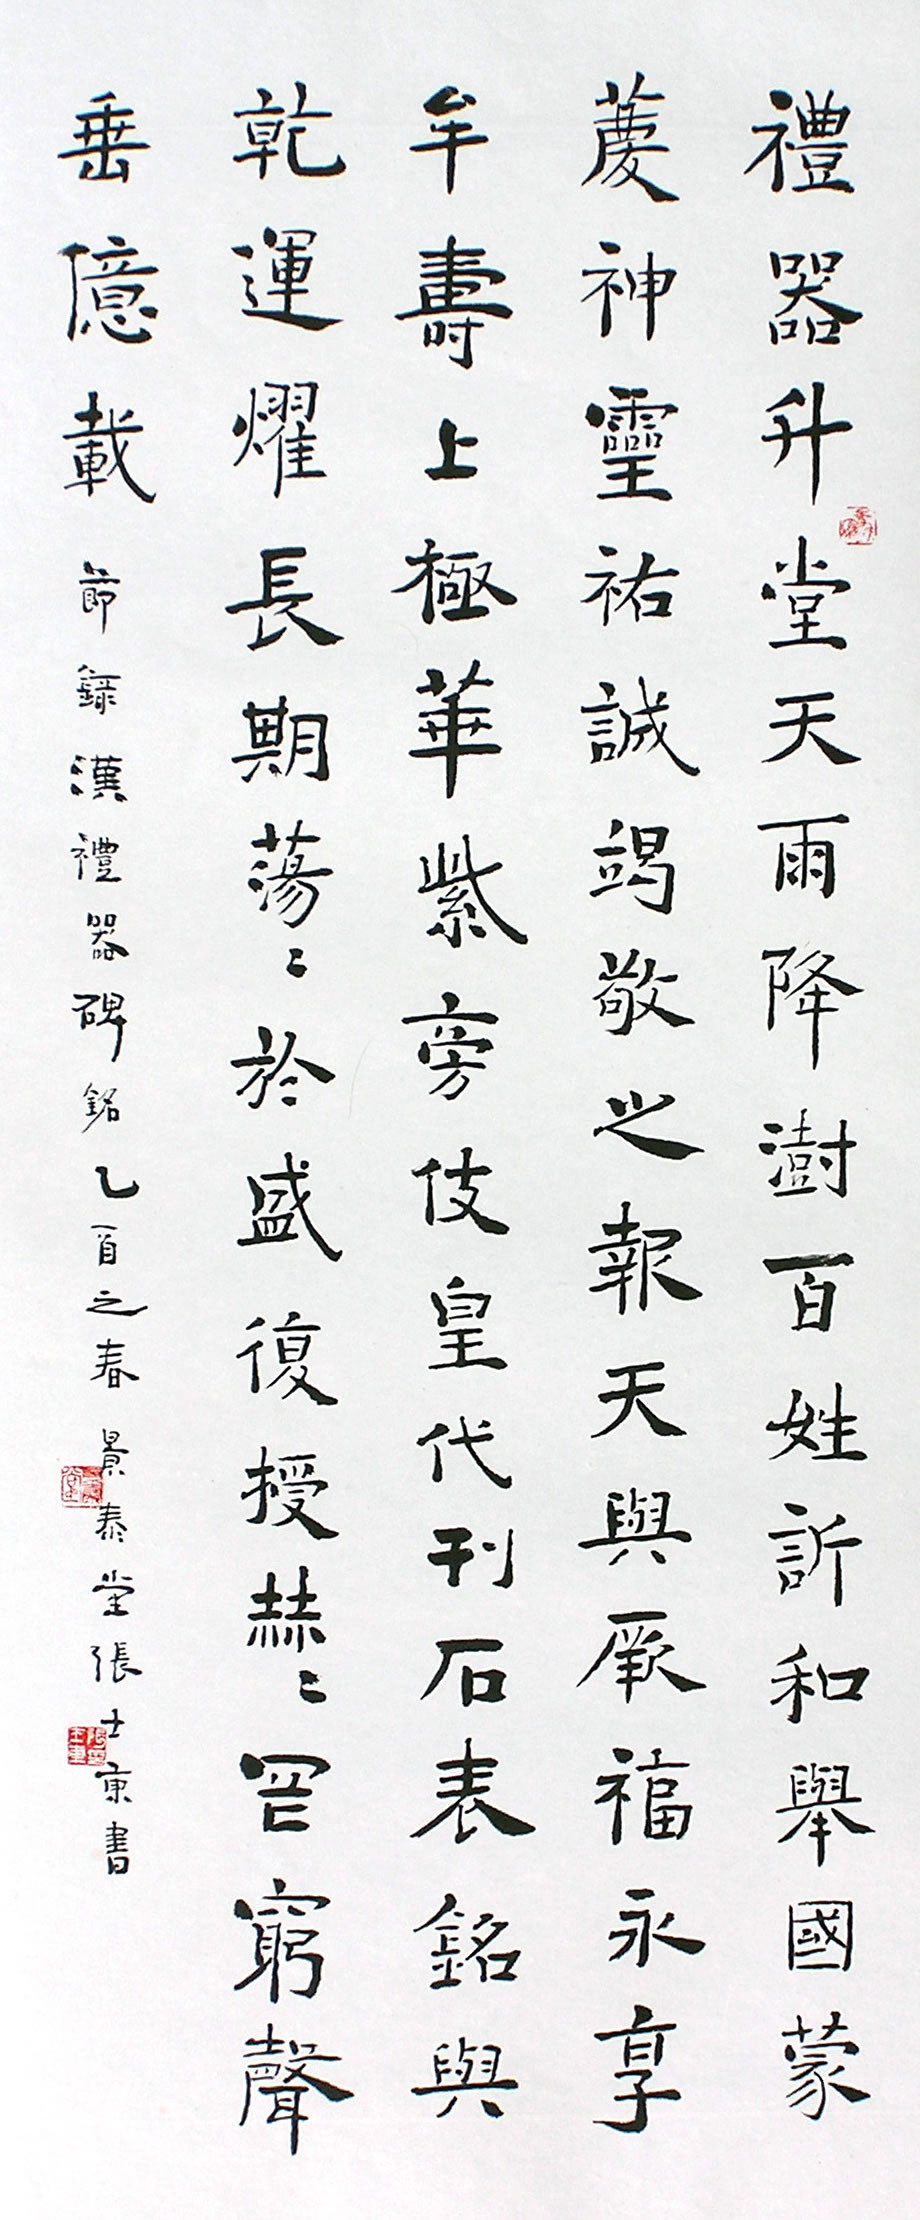 禮器升堂天雨降澍百姓訢和舉國蒙
慶神靈祐誠竭敬之報天與厥福永享
牟壽上極華紫旁伎皇代刊石表銘與
乾運燿長期蕩〻於盛復授赫〻罔窮聲
垂億載
節錄漢禮器碑銘乙酉之春景泰堂張士東書